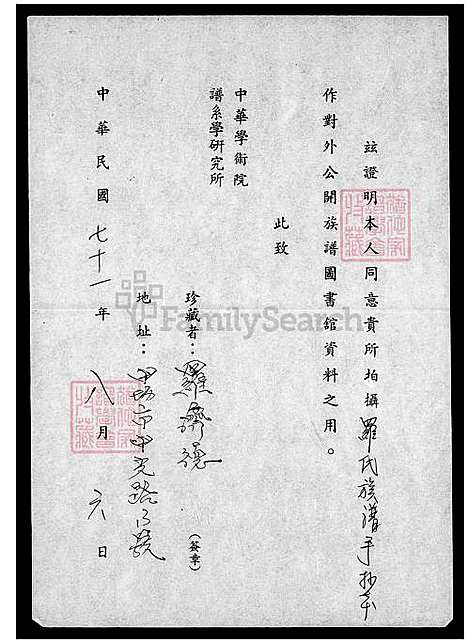 茲證明本人同意貴所拍攝羅氏族譜手抄本
作對外公開族譜圖書館資料之用。
此致
中華學術院
譜系學研究所
珍藏者：羅濟德（簽章）
地址：中和市中光路
中華民國七十一年八月六日
FamilySearch